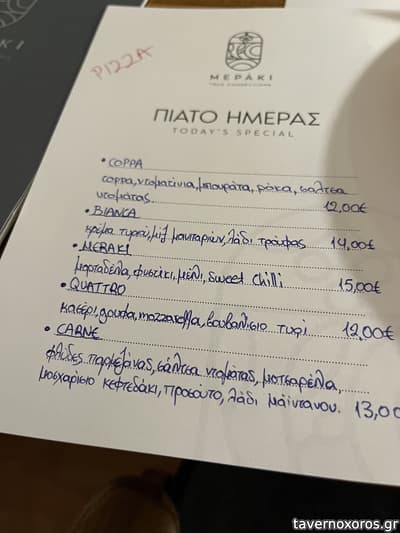 PIZZA
ΜΕΡΑΚΙ
ΠΙΑΤΟ ΗΜΕΡΑΣ
TODAY'S SPECIAL
• COPPA
coppa, ντοματίνια, μπουράτα, ρόκα, σάλτσα
ντομάτας. 12,00€
• BIANCA
κρέμα τυριού, μιξ μανιταριών, λάδι τρούφας 14,00€
• MERAKI
μορταδέλα, φυστίκι, μέλι, sweet chilli 15,00€
• QUATTRO
κασέρι, gouda, mozzarella, βουβαλίσιο τυρί 12,00€
• CARNE
φλύδες παρμεζάνας, σάλτσα ντομάτας, μοτσαρέλα,
μοσχαρίσιο κεφτεδάκι, προσούτο, λάδι μαϊντανού. 13,00
tavernoxoros.gr